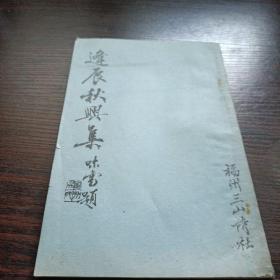 逢辰秋興集
味雪題
福州三山诗社